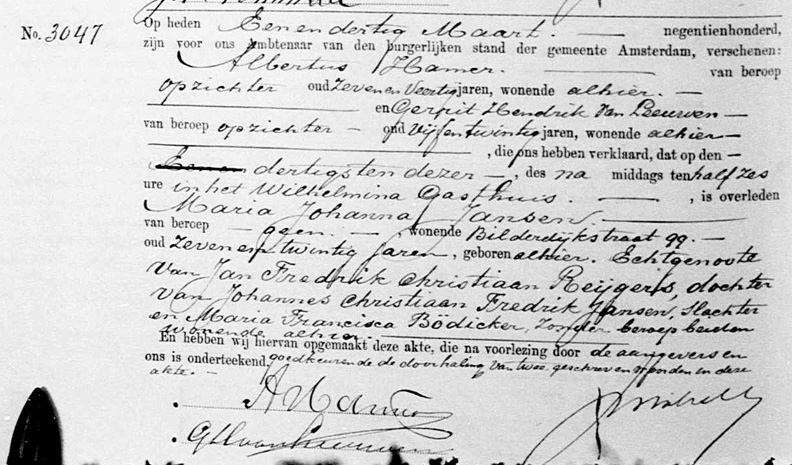 No. 3047
Op heden Eenendertig Maart. — negentienhonderd,
zijn voor ons Ambtenaar van den burgerlijken stand der gemeente Amsterdam, verschenen:
Albertus Hamer. — van beroep
opzichter oud Zevenenveertig jaren, wonende alhier. —
en Gerrit Hendrik Van Leeuwen —
van beroep opzichter — oud Vijfentwintig jaren, wonende alhier —
, die ons hebben verklaard, dat op den —
Eenen dertigsten dezer —, des na middags ten half zes
ure in het Wilhelmina Gasthuis. —, is overleden
Maria Johanna Jansen —
van beroep — geen. —, wonende Bilderdijkstraat 99. —
oud Zevenentwintig jaren, geboren alhier. Echtgenoote
van Jan Fredrik Christiaan Reijgers, dochter
van Johannes Christiaan Fredrik Jansen, Slachter
en Maria Francisca Bödicker, zonder beroep beiden
wonende alhier.
En hebben wij hiervan opgemaakt deze akte, die na voorlezing door de aangevers en
ons is onderteekend, goedkeurende de doorhaling van twee geschreven woorden in deze
akte. —
A Hamer
GH van Leeuwen